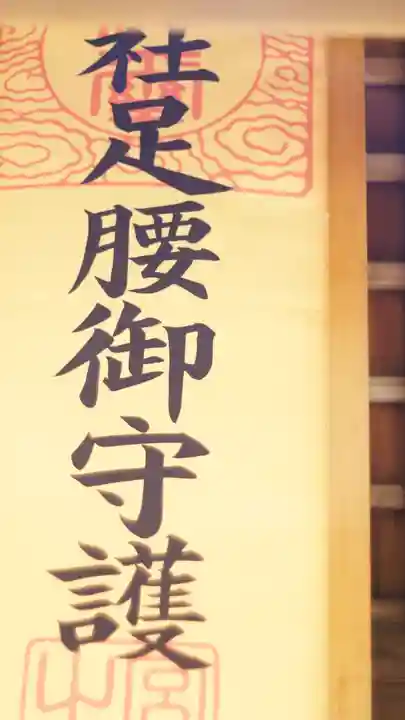 社足腰御守護